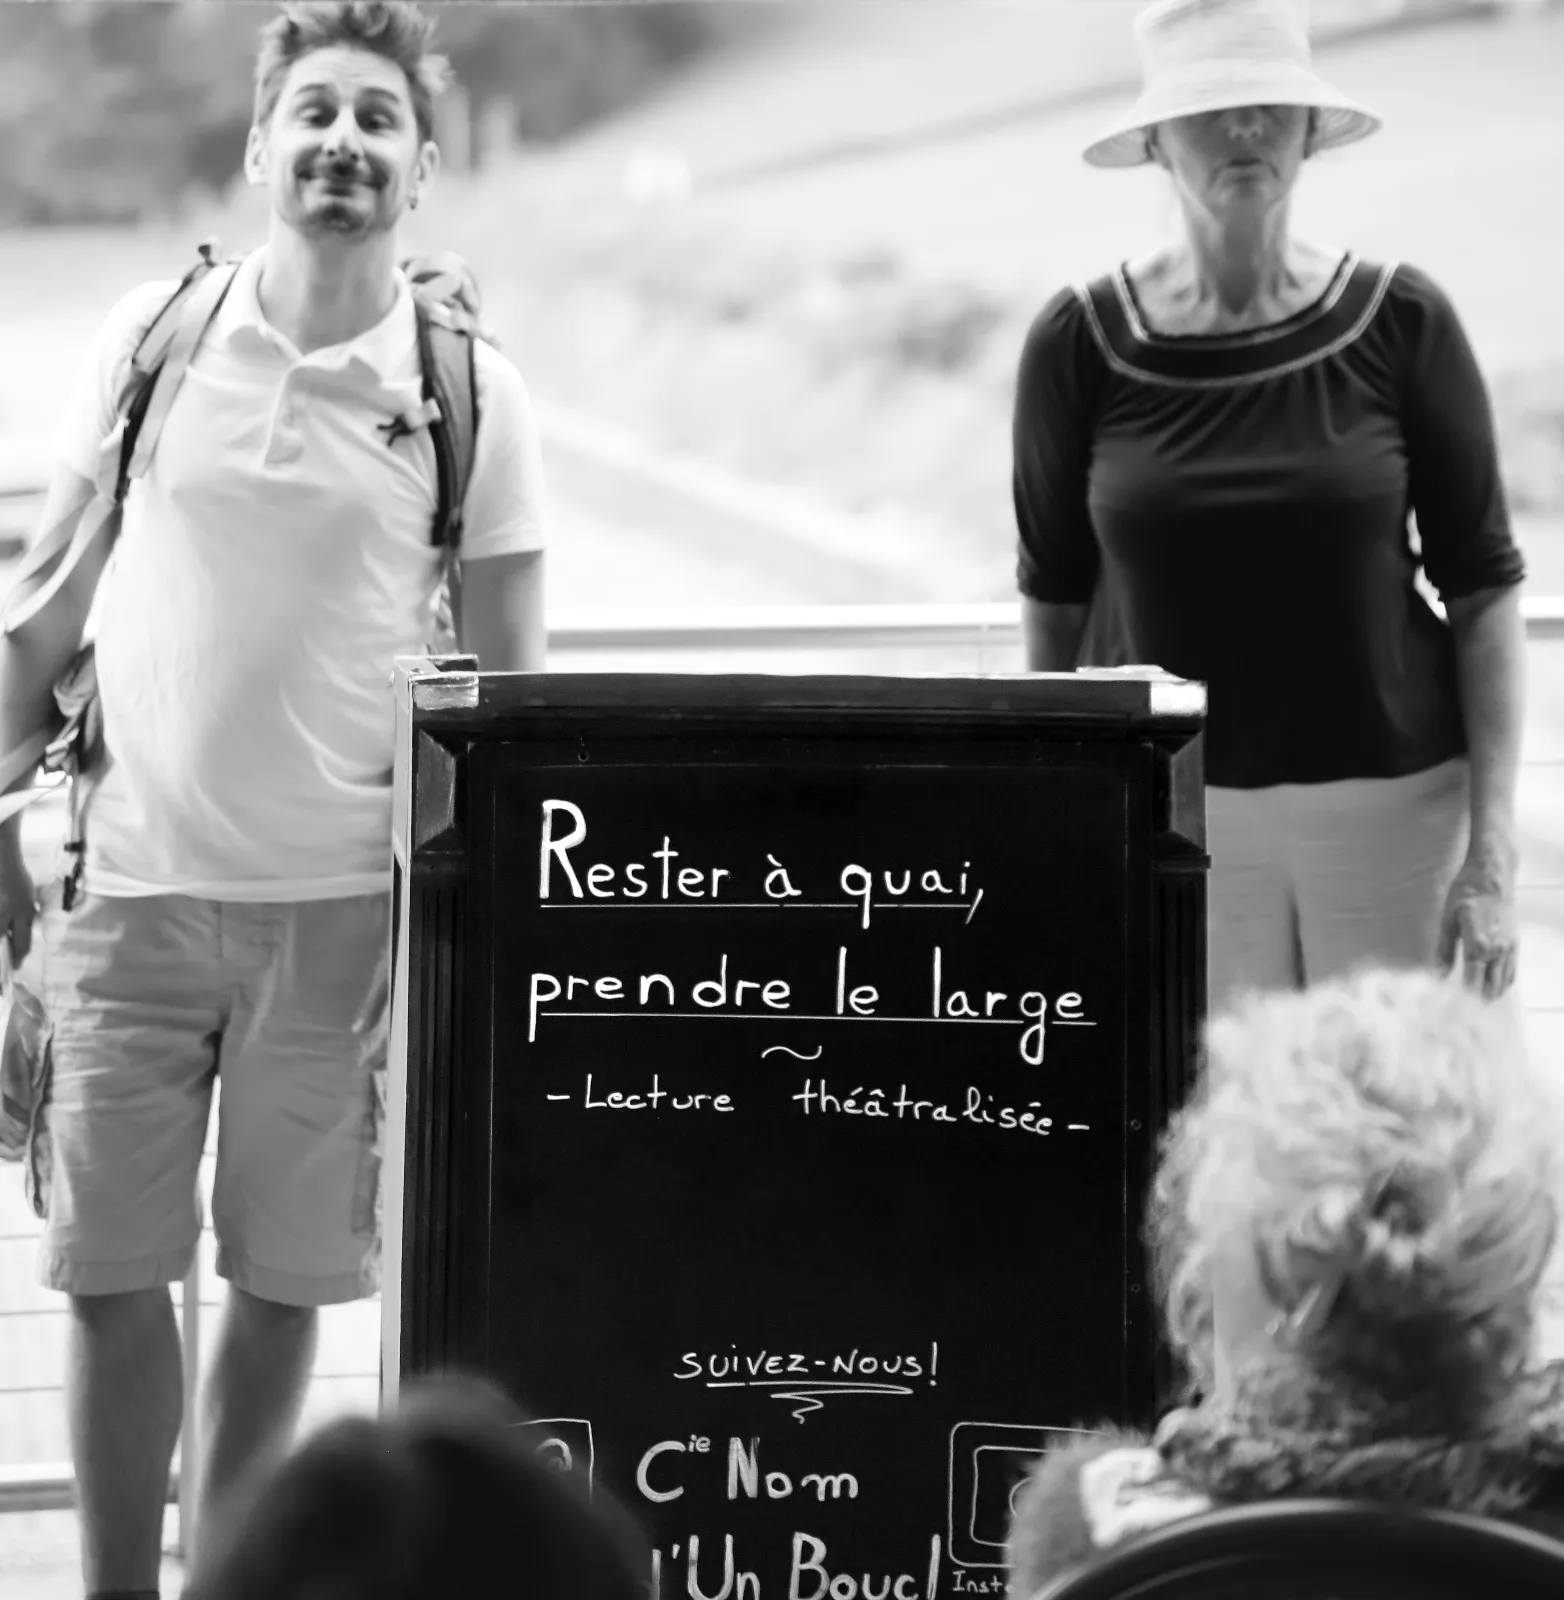 Rester à quai,
prendre le large
~
- Lecture théâtralisée -
SUIVEZ-NOUS!
Cie Nom
'Un